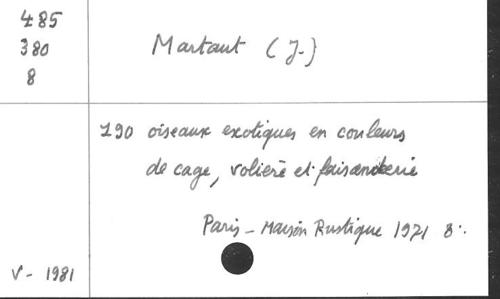 485
380
8
Martaut (J.)
190 oiseaux exotiques en couleurs
de cage, volière et faisanderie
Paris - Maison Rustique 1971 8°.
V - 1981